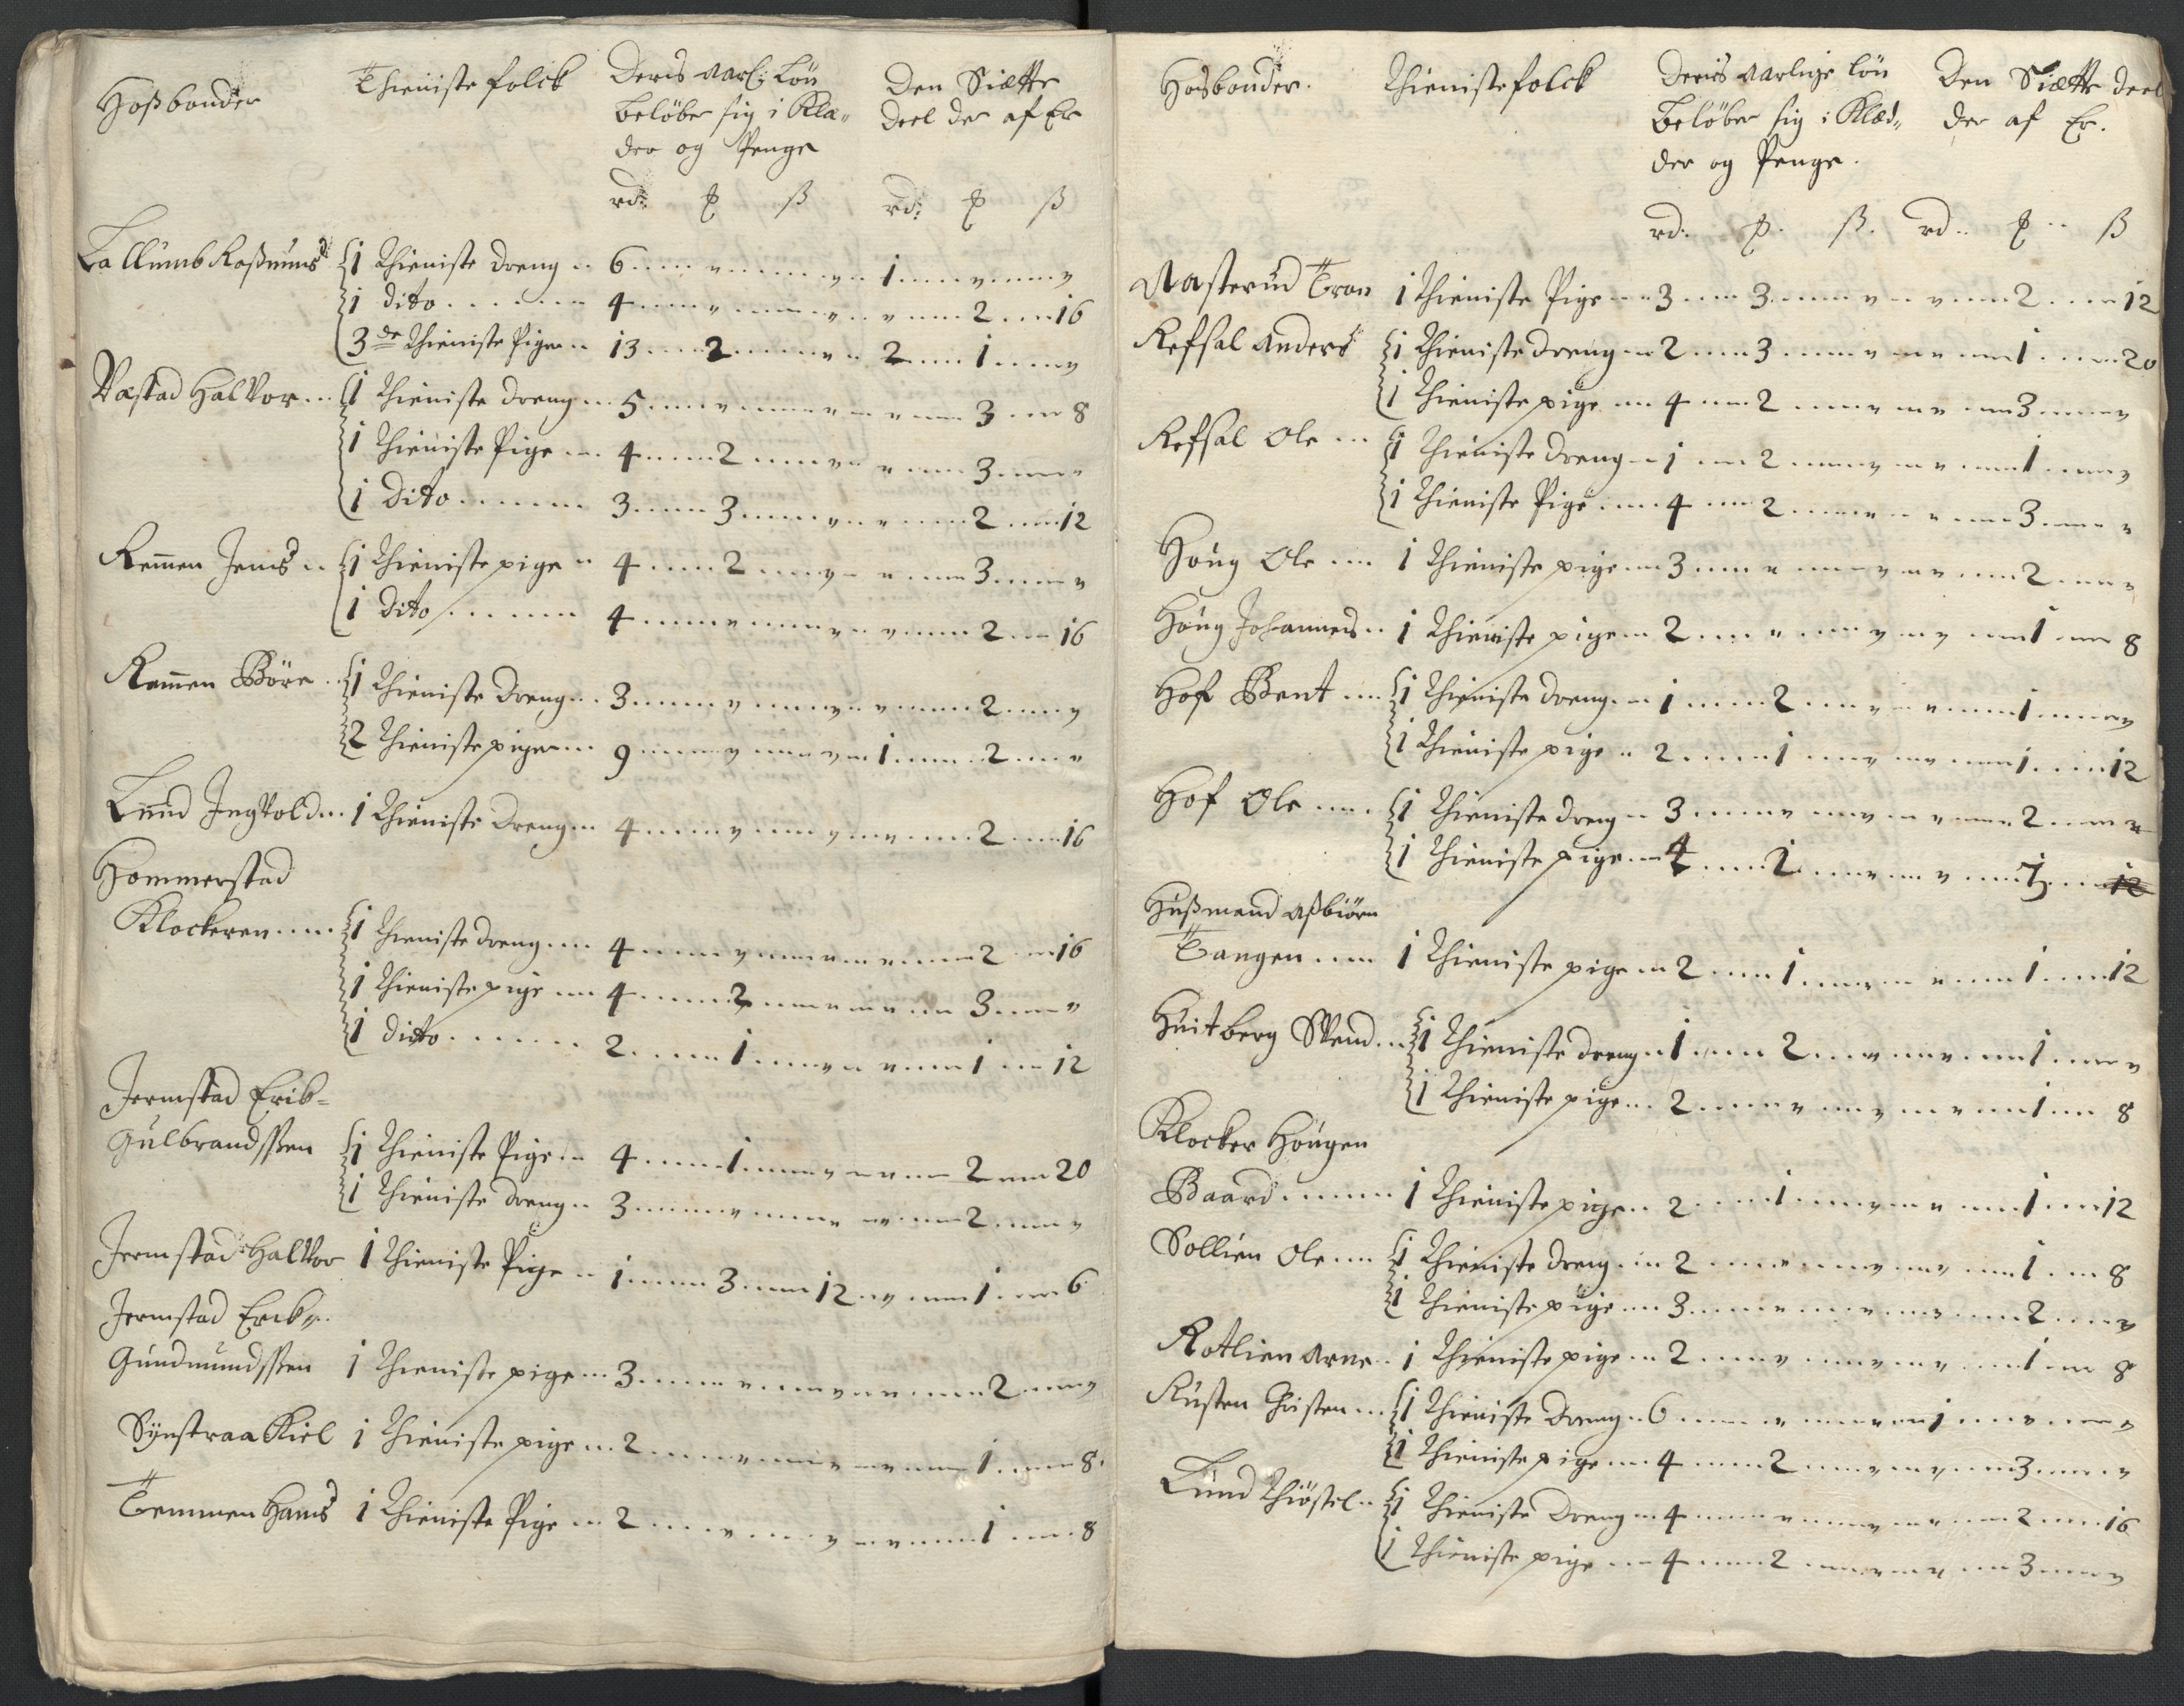 Hoßbonder Thieniste folck Deris aarl: Løn Den Siætte
beløber sig i Klæ„ deel der af Er
der og Penge
rd: ꝑ ß rd: ꝑ ß
Lallumb Raßmus 1 Thieniste dreng 6 „ „ 1 „ „
1 dito 4 „ „ „ 2 16
3de Thieniste Piger 13 2 „ 2 1 „
Wastad Halvor 1 Thieniste dreng 5 „ „ „ 3 8
1 Thieniste Pige 4 2 „ „ 3 „
1 Dito 3 3 „ „ 2 12
Remmen Jens 1 Thieniste pige 4 2 „ „ 3 „
1 Dito 4 „ „ „ 2 16
Remmen Børe 1 Thieniste Dreng 3 „ „ „ 2 „
2 Thieniste piger 9 „ „ 1 2 „
Lund Ingvold 1 Thieniste Dreng 4 „ „ „ 2 16
Hommerstad
Klockeren 1 Thieniste dreng 4 „ „ „ 2 16
1 Thieniste pige 4 2 „ „ 3 „
1 ditto 2 1 „ „ 1 12
Jermstad Erik-
Gulbrandssen 1 Thieniste Pige 4 1 „ „ 2 20
1 Thieniste dreng 3 „ „ „ 2 „
Jermstad Halvor 1 Thieniste Pige 1 3 12 „ 1 6
Jermstad Erik
Gundmundssen 1 Thieniste pige 3 „ „ „ 2 „
Synstraa Kiel 1 Thieniste pige 2 „ „ „ 1 8
Temmen Hans 1 Thieniste Pige 2 „ „ „ 1 8
Hosbonder. Thieniste folck Deris aarlige løn Den Siætte deel
Beløber sig i Klæd„ der af Er.
der og Penge.
rd. ꝑ. ß. rd. ꝑ ß
Aasterud Tron 1 Thieniste Pige 3 3 „ „ 2 12
Refsal Anders 1 Thieniste dreng 2 3 „ „ 1 20
1 Thieniste pige 4 2 „ „ 3 „
Refsal Ole 1 Thieniste dreng 1 2 „ „ 1 „
1 Thieniste Pige 4 2 „ „ 3 „
Houg Ole 1 Thieniste pige 3 „ „ „ 2 „
Houg Johannes 1 Thieniste pige 2 „ „ „ 1 8
Hof Bent 1 Thieniste dreng 1 2 „ „ 1 „
1 Thieniste pige 2 1 „ „ 1 12
Hof Ole 1 Thieniste dreng 3 „ „ „ 2 „
1 Thieniste pige 4 2 „ „ 3 12
Hußmand Aßbiørn
Tangen 1 Thieniste pige 2 1 „ „ 1 12
Huitberg Svend 1 Thieniste dreng 1 2 „ „ 1 „
1 Thieniste pige 2 „ „ „ 1 8
Klocker Hougen
Baard 1 Thieniste pige 2 1 „ „ 1 12
Sollien Ole 1 Thieniste dreng 2 „ „ „ 1 8
1 Thieniste pige 3 „ „ „ 2 „
Rotlien Arne 1 Thieniste pige 2 „ „ „ 1 8
Rusten Christen 1 Thieniste Dreng 6 „ „ 1 „ „
1 Thieniste pige 4 2 „ „ 3 „
Lund Thiøstel 1 Thieniste Dreng 4 „ „ „ 2 16
1 Thieniste pige 4 2 „ „ 3 „